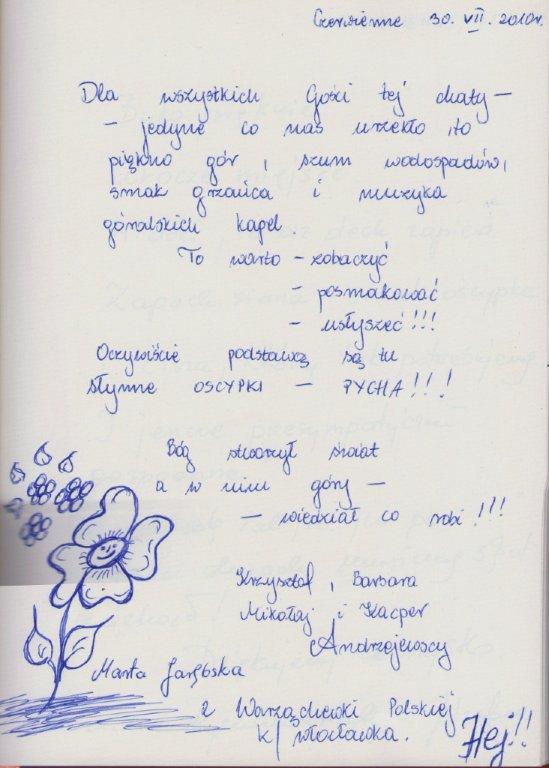 Czerwienne 30. VII. 2010r.
Dla wszystkich Gości tej chaty –
– jedyne co nas urzekło, to
piękno gór, szum wodospadów,
smak grzańca i muzyka
góralskich kapel.
To warto – zobaczyć
– posmakować
– usłyszeć!!!
Oczywiście podstawą są tu
słynne OSCYPKI – PYCHA!!!
Bóg stworzył świat
a w nim góry –
– wiedział co robi!!!
Krzysztof, Barbara
Mikołaj i Kacper
Andrzejewscy
Marta Jarębska
z Warząchewki Polskiej
k/ Włocławka.
Hej!!